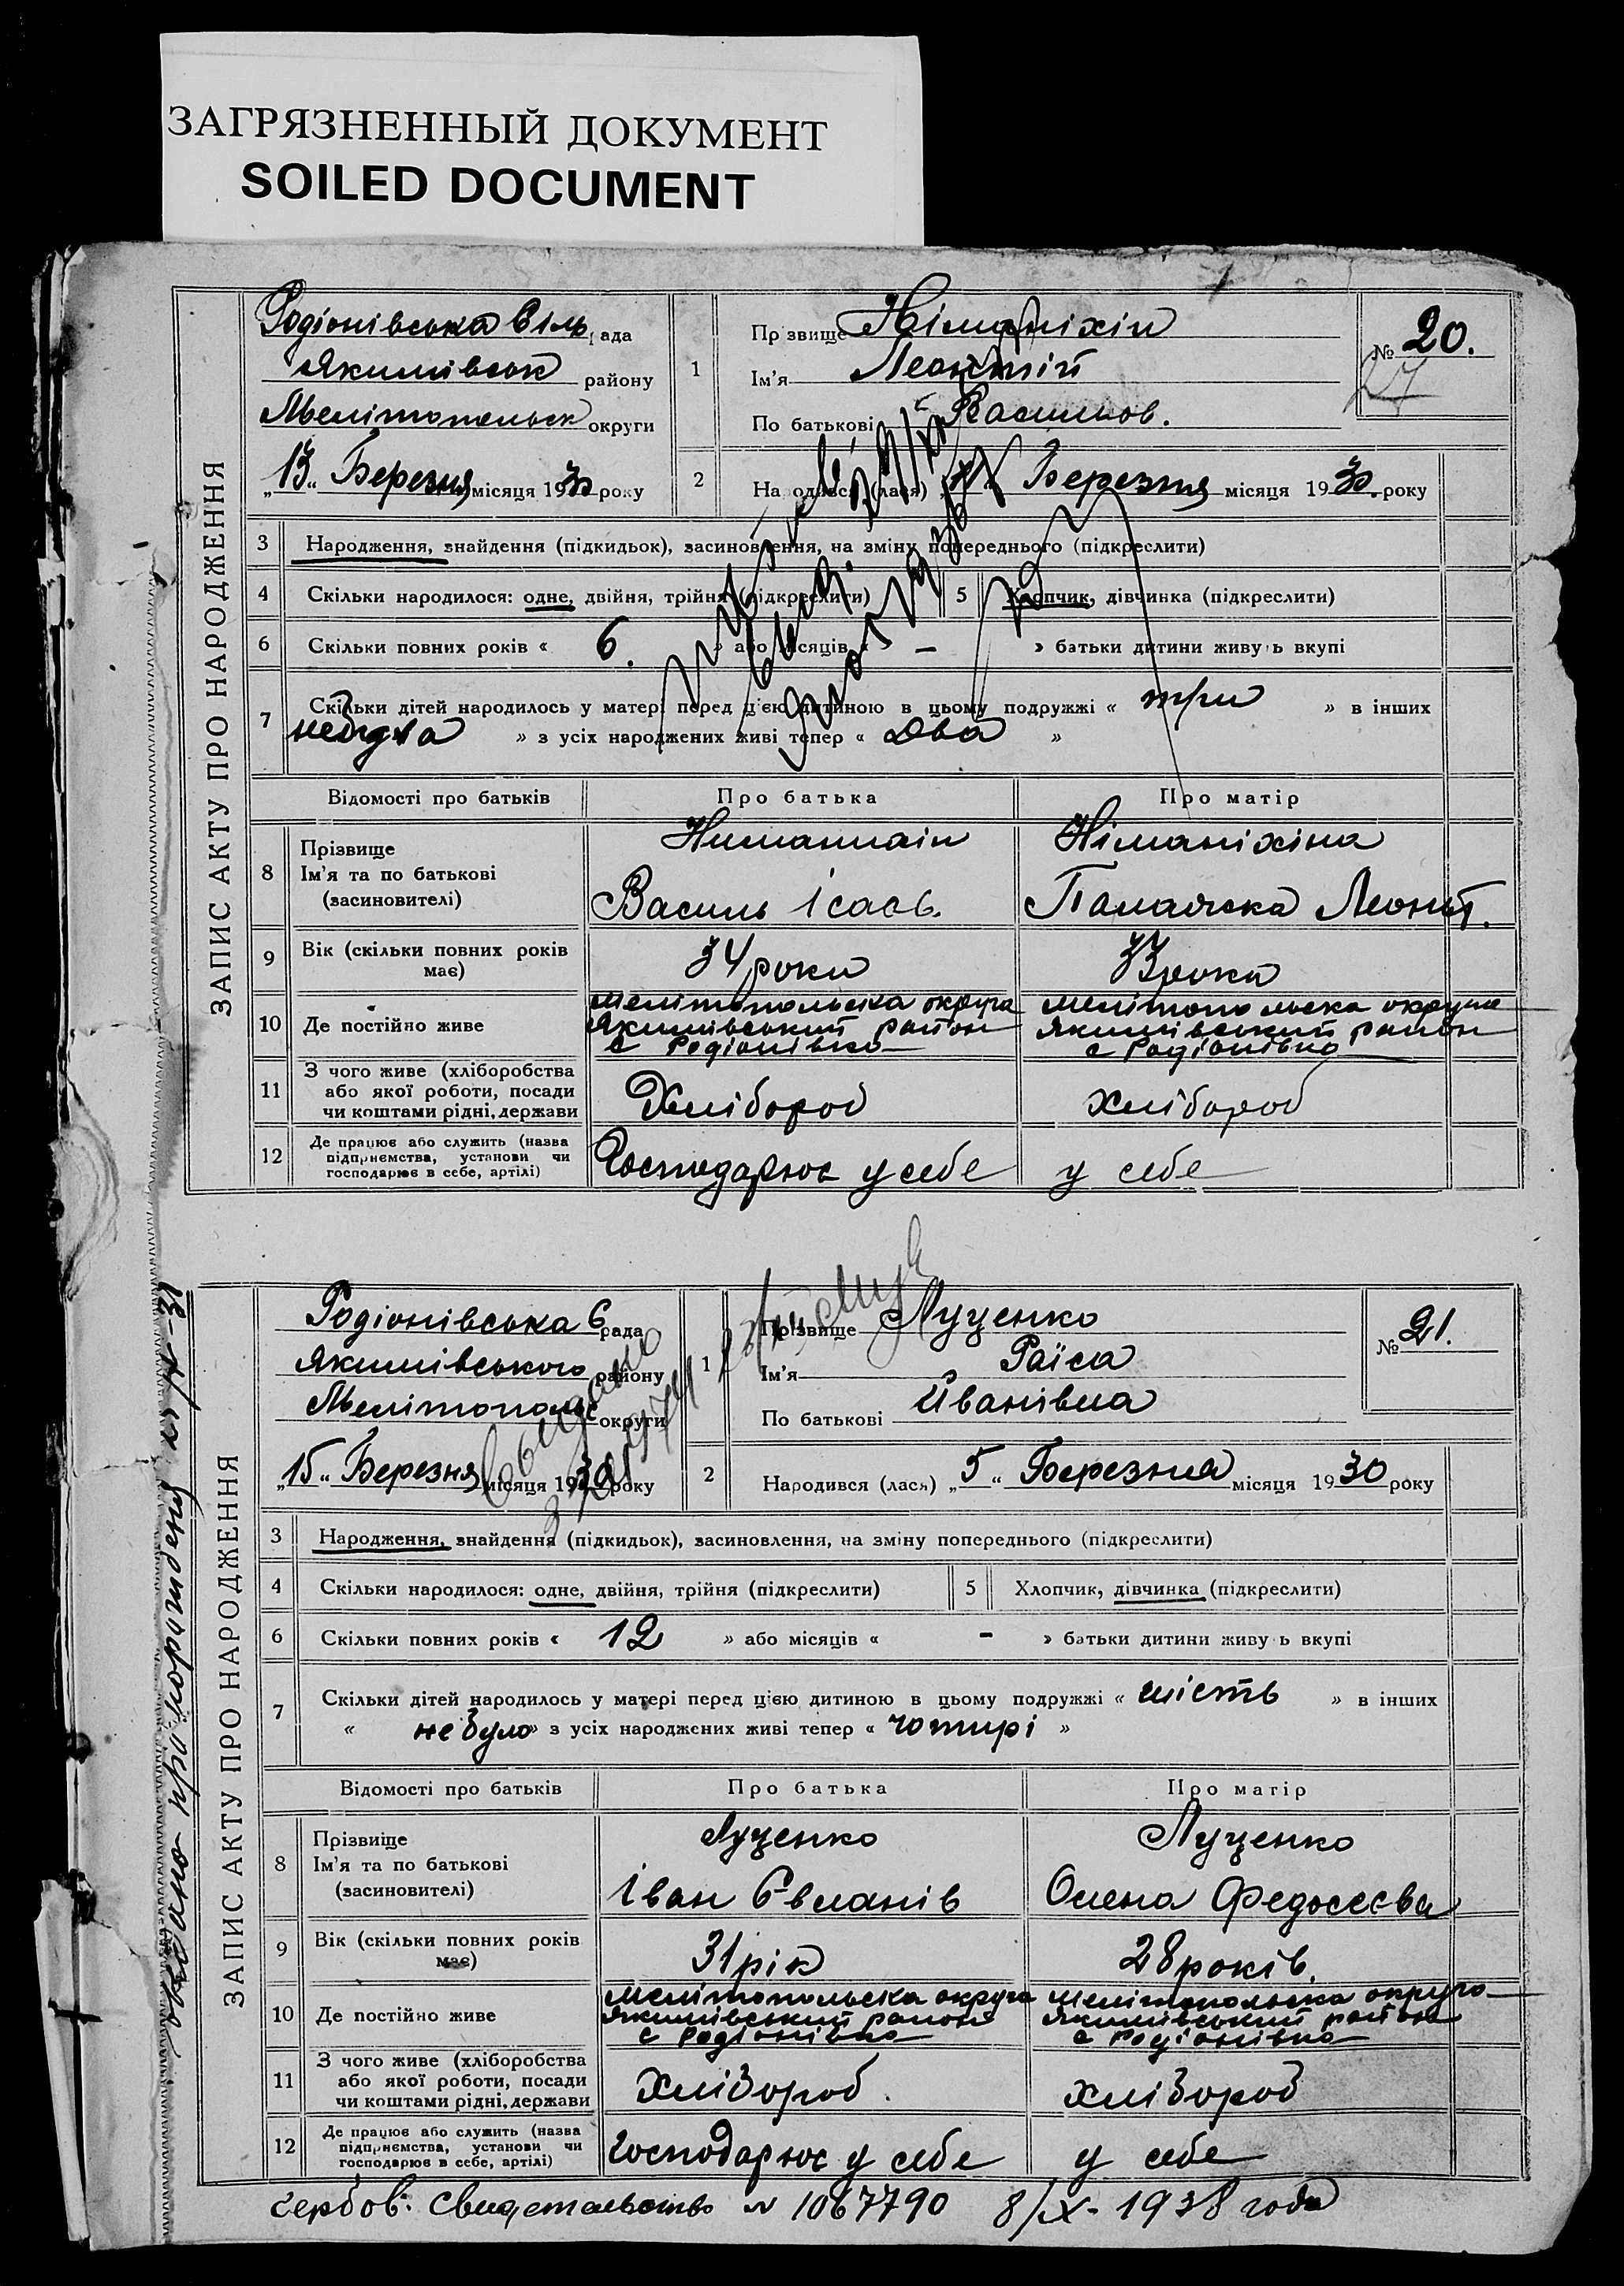 ЗАГРЯЗНЕННЫЙ ДОКУМЕНТ
SOILED DOCUMENT
ЗАПИС АКТУ ПРО НАРОДЖЕННЯ
Родіонівська Сіль рада
Якимівськ району
Мелітопольск округи
„13“ Березня місяця 1930 року
1
Прізвище Німаніхін
Ім'я Леонтій
По батькові Васильов.
№ 20.
27
2
Народився (лася) Березня місяця 1930 року
3 Народження, знайдення (підкидьок), засиновлення, на зміну попереднього (підкреслити)
4 Скільки народилося: одне, двійня, трійня (підкреслити) 5 Хлопчик, дівчинка (підкреслити)
6 Скільки повних років « 6. » або місяців « – » батьки дитини живуть вкупі
7 Скільки дітей народилось у матері перед цією дитиною в цьому подружжі « три » в інших
» з усіх народжених живі тепер « два »
Відомості про батьків Про батька Про матір
8 Прізвище
Ім'я та по батькові
(засновителі)
Німаніхіна
Василь Ісаов. Палажка Леонт.
9 Вік (скільки повних років має) 34 роки 33 роки
10 Де постійно живе
Мелітопольска округа Мелітопольска округа
Якимівський район Якимівський район
с Родіонівка с Родіонівка
11 З чого живе (хліборобства
або якої роботи, посади
чи коштами рідні, держави
Хлібороб хлібороб
12 Де працює або служить (назва
підприємства, установи чи
господарює в себе, артілі)
Господарює у себе у себе
ЗАПИС АКТУ ПРО НАРОДЖЕННЯ
Родіонівська С рада
Якимівського району
Мелітополь округи
„15“ Березня місяця 1930 року
1
Прізвище Луценко
Ім'я Раїса
По батькові Иванівна
№ 21.
2
Народився (лася) „5“ Березня місяця 1930 року
3 Народження, знайдення (підкидьок), засиновлення, на зміну попереднього (підкреслити)
4 Скільки народилося: одне, двійня, трійня (підкреслити) 5 Хлопчик, дівчинка (підкреслити)
6 Скільки повних років « 12 » або місяців « – » батьки дитини живуть вкупі
7 Скільки дітей народилось у матері перед цією дитиною в цьому подружжі « шість » в інших
« не було » з усіх народжених живі тепер « чотирі »
Відомості про батьків Про батька Про матір
8 Прізвище
Ім'я та по батькові
(засиновителі)
Луценко Луценко
Іван Євланів Олена Федосєєва
9 Вік (скільки повних років має) 31 рік 28 років.
10 Де постійно живе
Мелітопольска округа Мелітопольска округа
Якимівський район Якимівський район
с Родіонівка с Родіонівка
11 З чого живе (хліборобства
або якої роботи, посади
чи коштами рідні, держави
Хлібороб. хлібороб
12 Де працює або служить (назва
підприємства, установи чи
господарює в себе, артілі)
Господарює у себе у себе
гербов. свидетельство № 1067790 8/X-1938 года